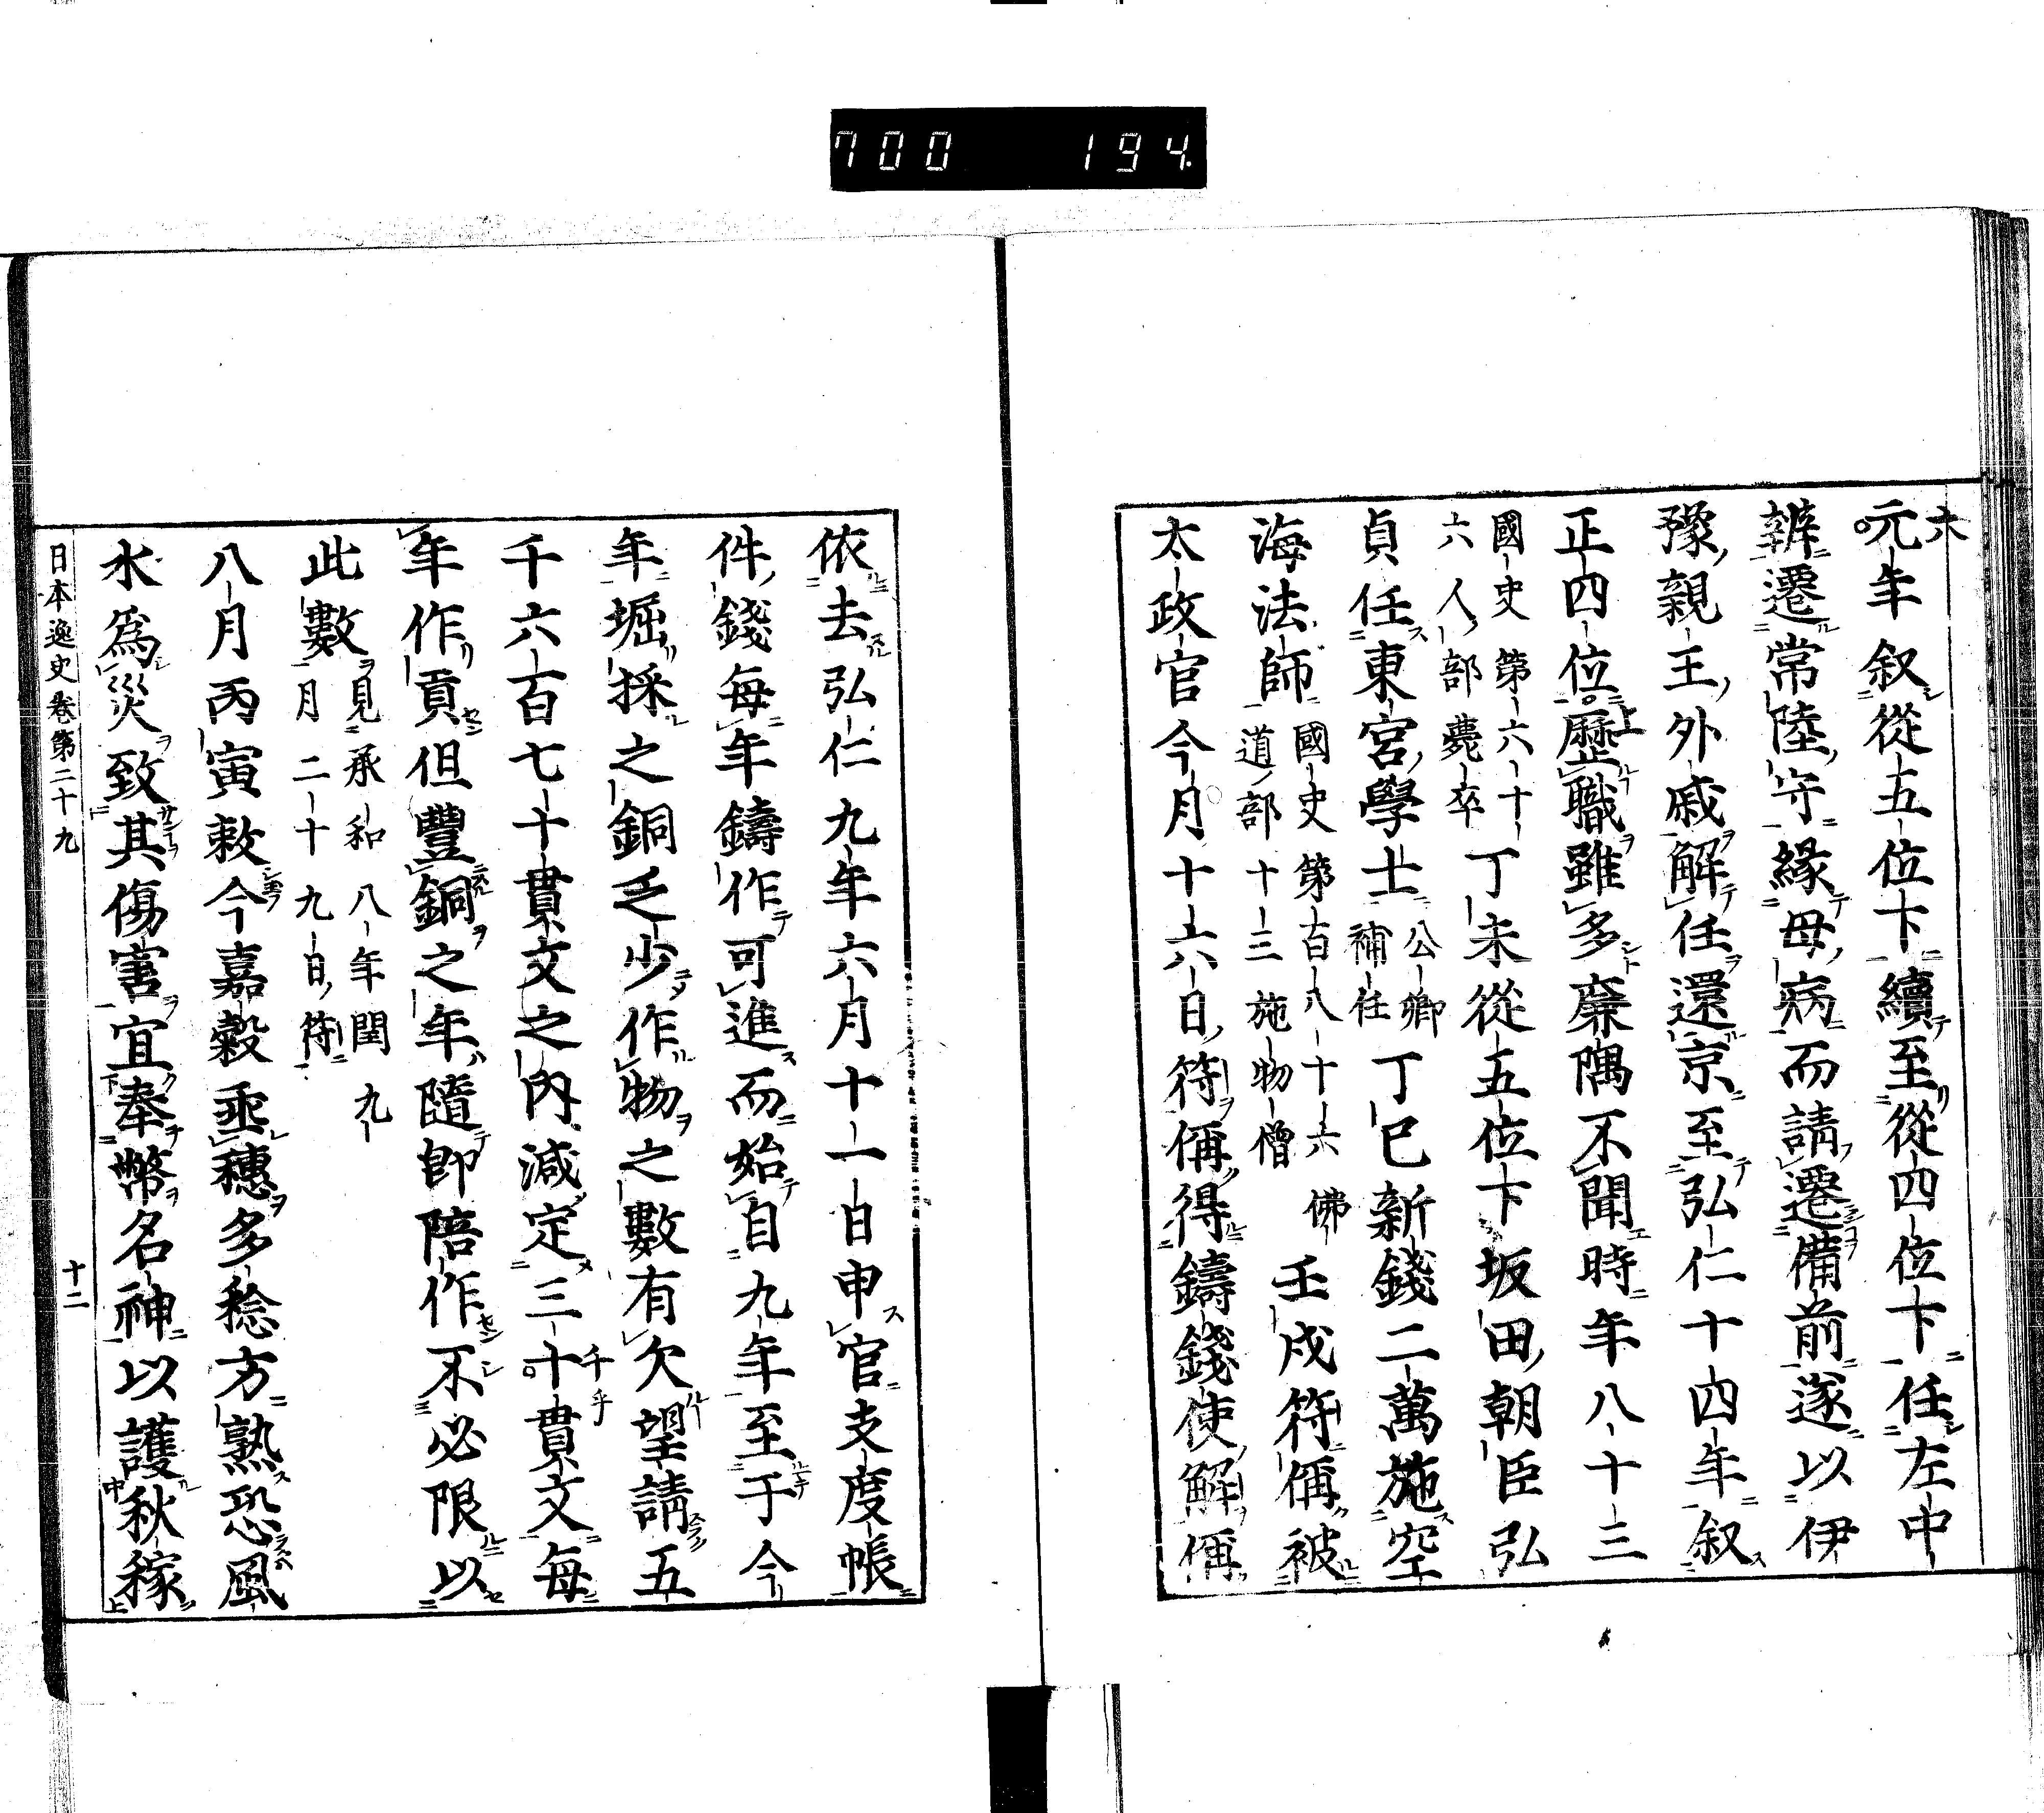 700 194
元年叙從五位下續至從四位下任左中
六
辨遷常陸守緣母病而請遷備前遂以伊
豫親王外戚解任還京至弘仁十四年叙
正四位歷職雖多廉隅不聞時年八十三
上
國史第六十
六人部薨卒
丁未從五位下坂田朝臣弘
貞任東宮學士
公卿
補任
丁巳新錢二萬施空
海法師
國史第百八十六佛
道部十三施物僧
壬戌符偁被
太政官今月十六日符偁得鑄錢使解偁
依去弘仁九年六月十一日申官支度帳
件錢每年鑄作可進而始自九年至于今
年堀採之銅乏少作物之數有欠望請五
千六百七十貫文之內減定三十貫文每
千乎
年作貢但豐銅之年隨即陪作不必限以
此數
見承和八年閏九
月二十九日符
八月丙寅敕今嘉穀垂穗多稔方熟恐風
水為災致其傷害宜奉幣名神以護秋稼
日本逸史卷第二十九
十二